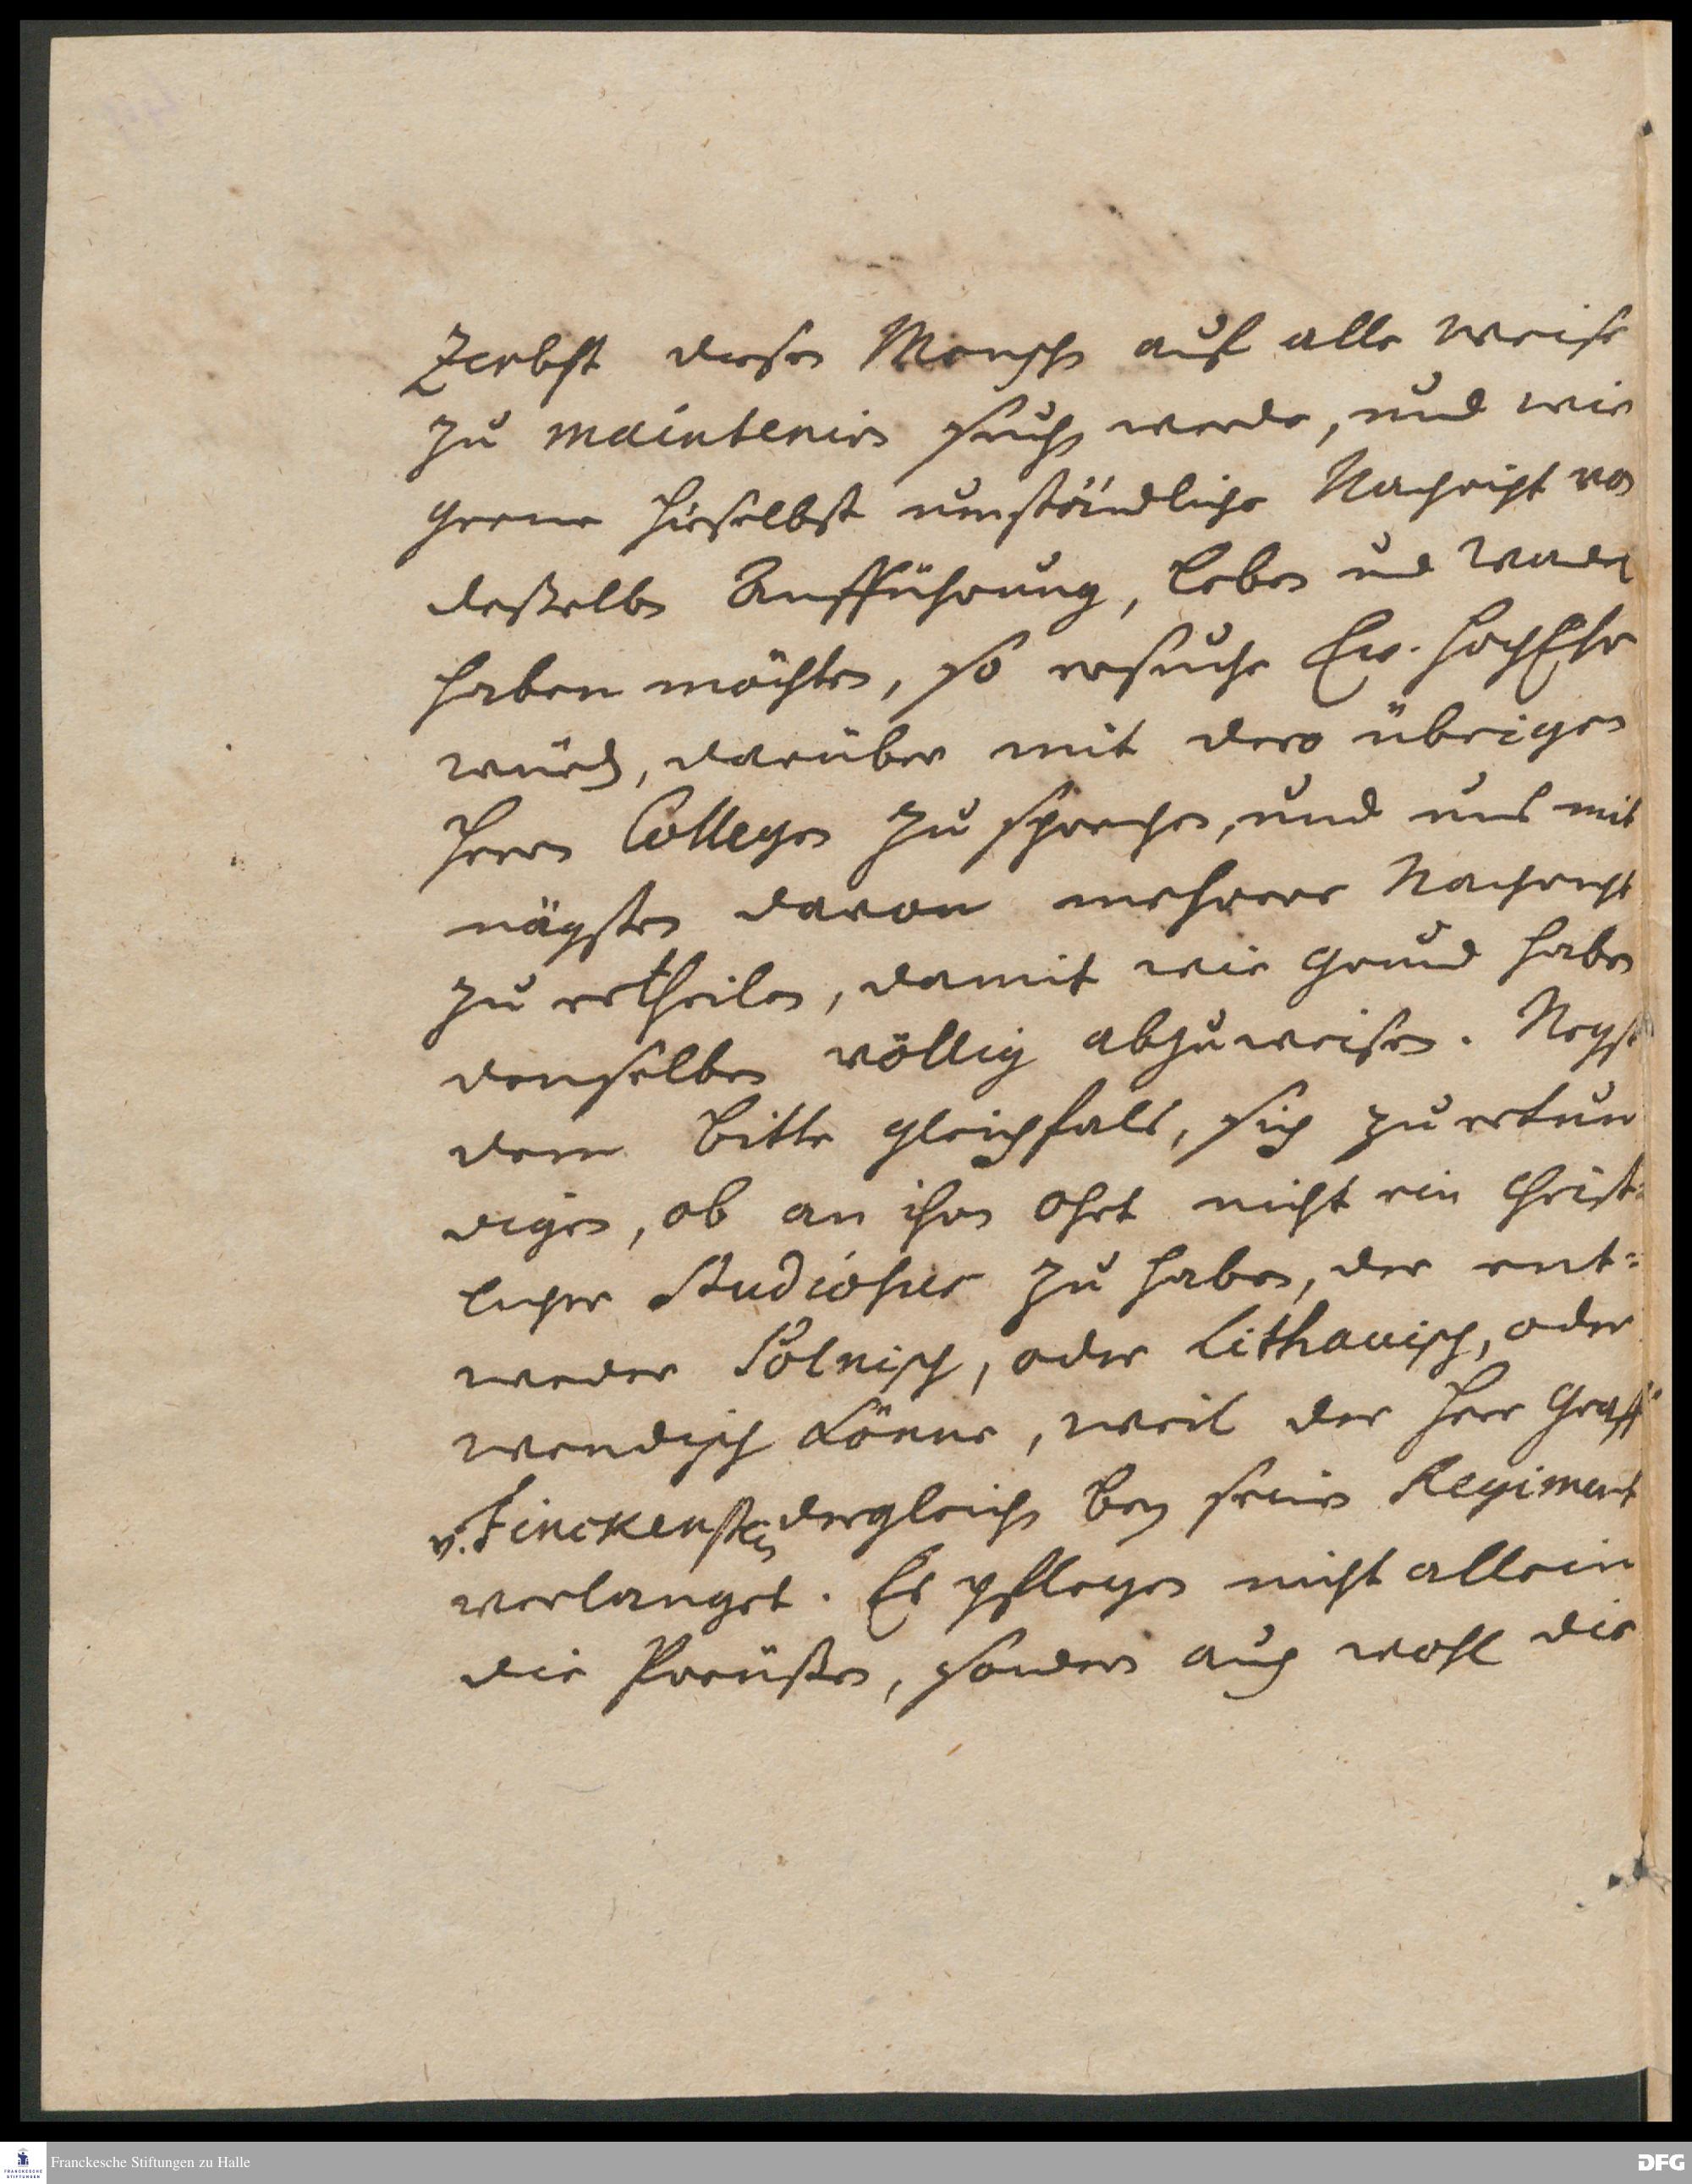 Zerbst diesen Menschen auf alle weise
zu mainteniren suchen werde, und wir
gerne hieselbst umständliche Nachricht von
deßelben Aufführung, Leben und Wandel
haben möchten, so ersuche Ew. HochEhr
würden, darüber mit dero übrigen
Herren Collegen zu sprechen, und uns mit
nägsten davon mehrere Nachricht
zu ertheilen, damit wir Grund haben
denselben völlig abzuweisen. Negst
dem bitte gleichfals, sich zu erkun
digen, ob an ihren Ohrt nicht ein Christ=
licher Studiosus zu haben, der ent=
weder Polnisch, oder Lithauisch, oder
wendisch könne, weil der Herr Graff
v. Finckenstein dergleichen bey seinen Regiment
verlanget. Es pflegen nicht allein
die Preüßen, sondern auch wohl die
Franckesche Stiftungen zu Halle
DFG